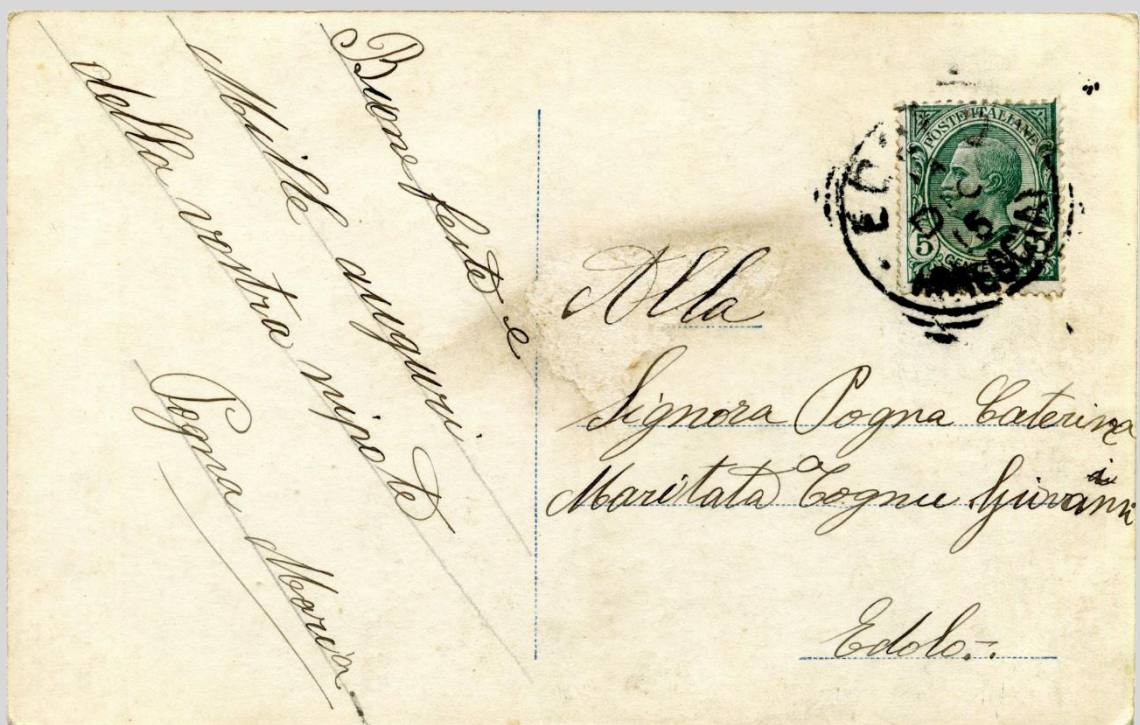 Buone feste e
Mille auguri
della vostra nipote
Pogna Maria
POSTE ITALIANE
5
15
Alla
Signora Pogna Caterina
Maritata a Tognu Giuvanni di
Edolo.-.